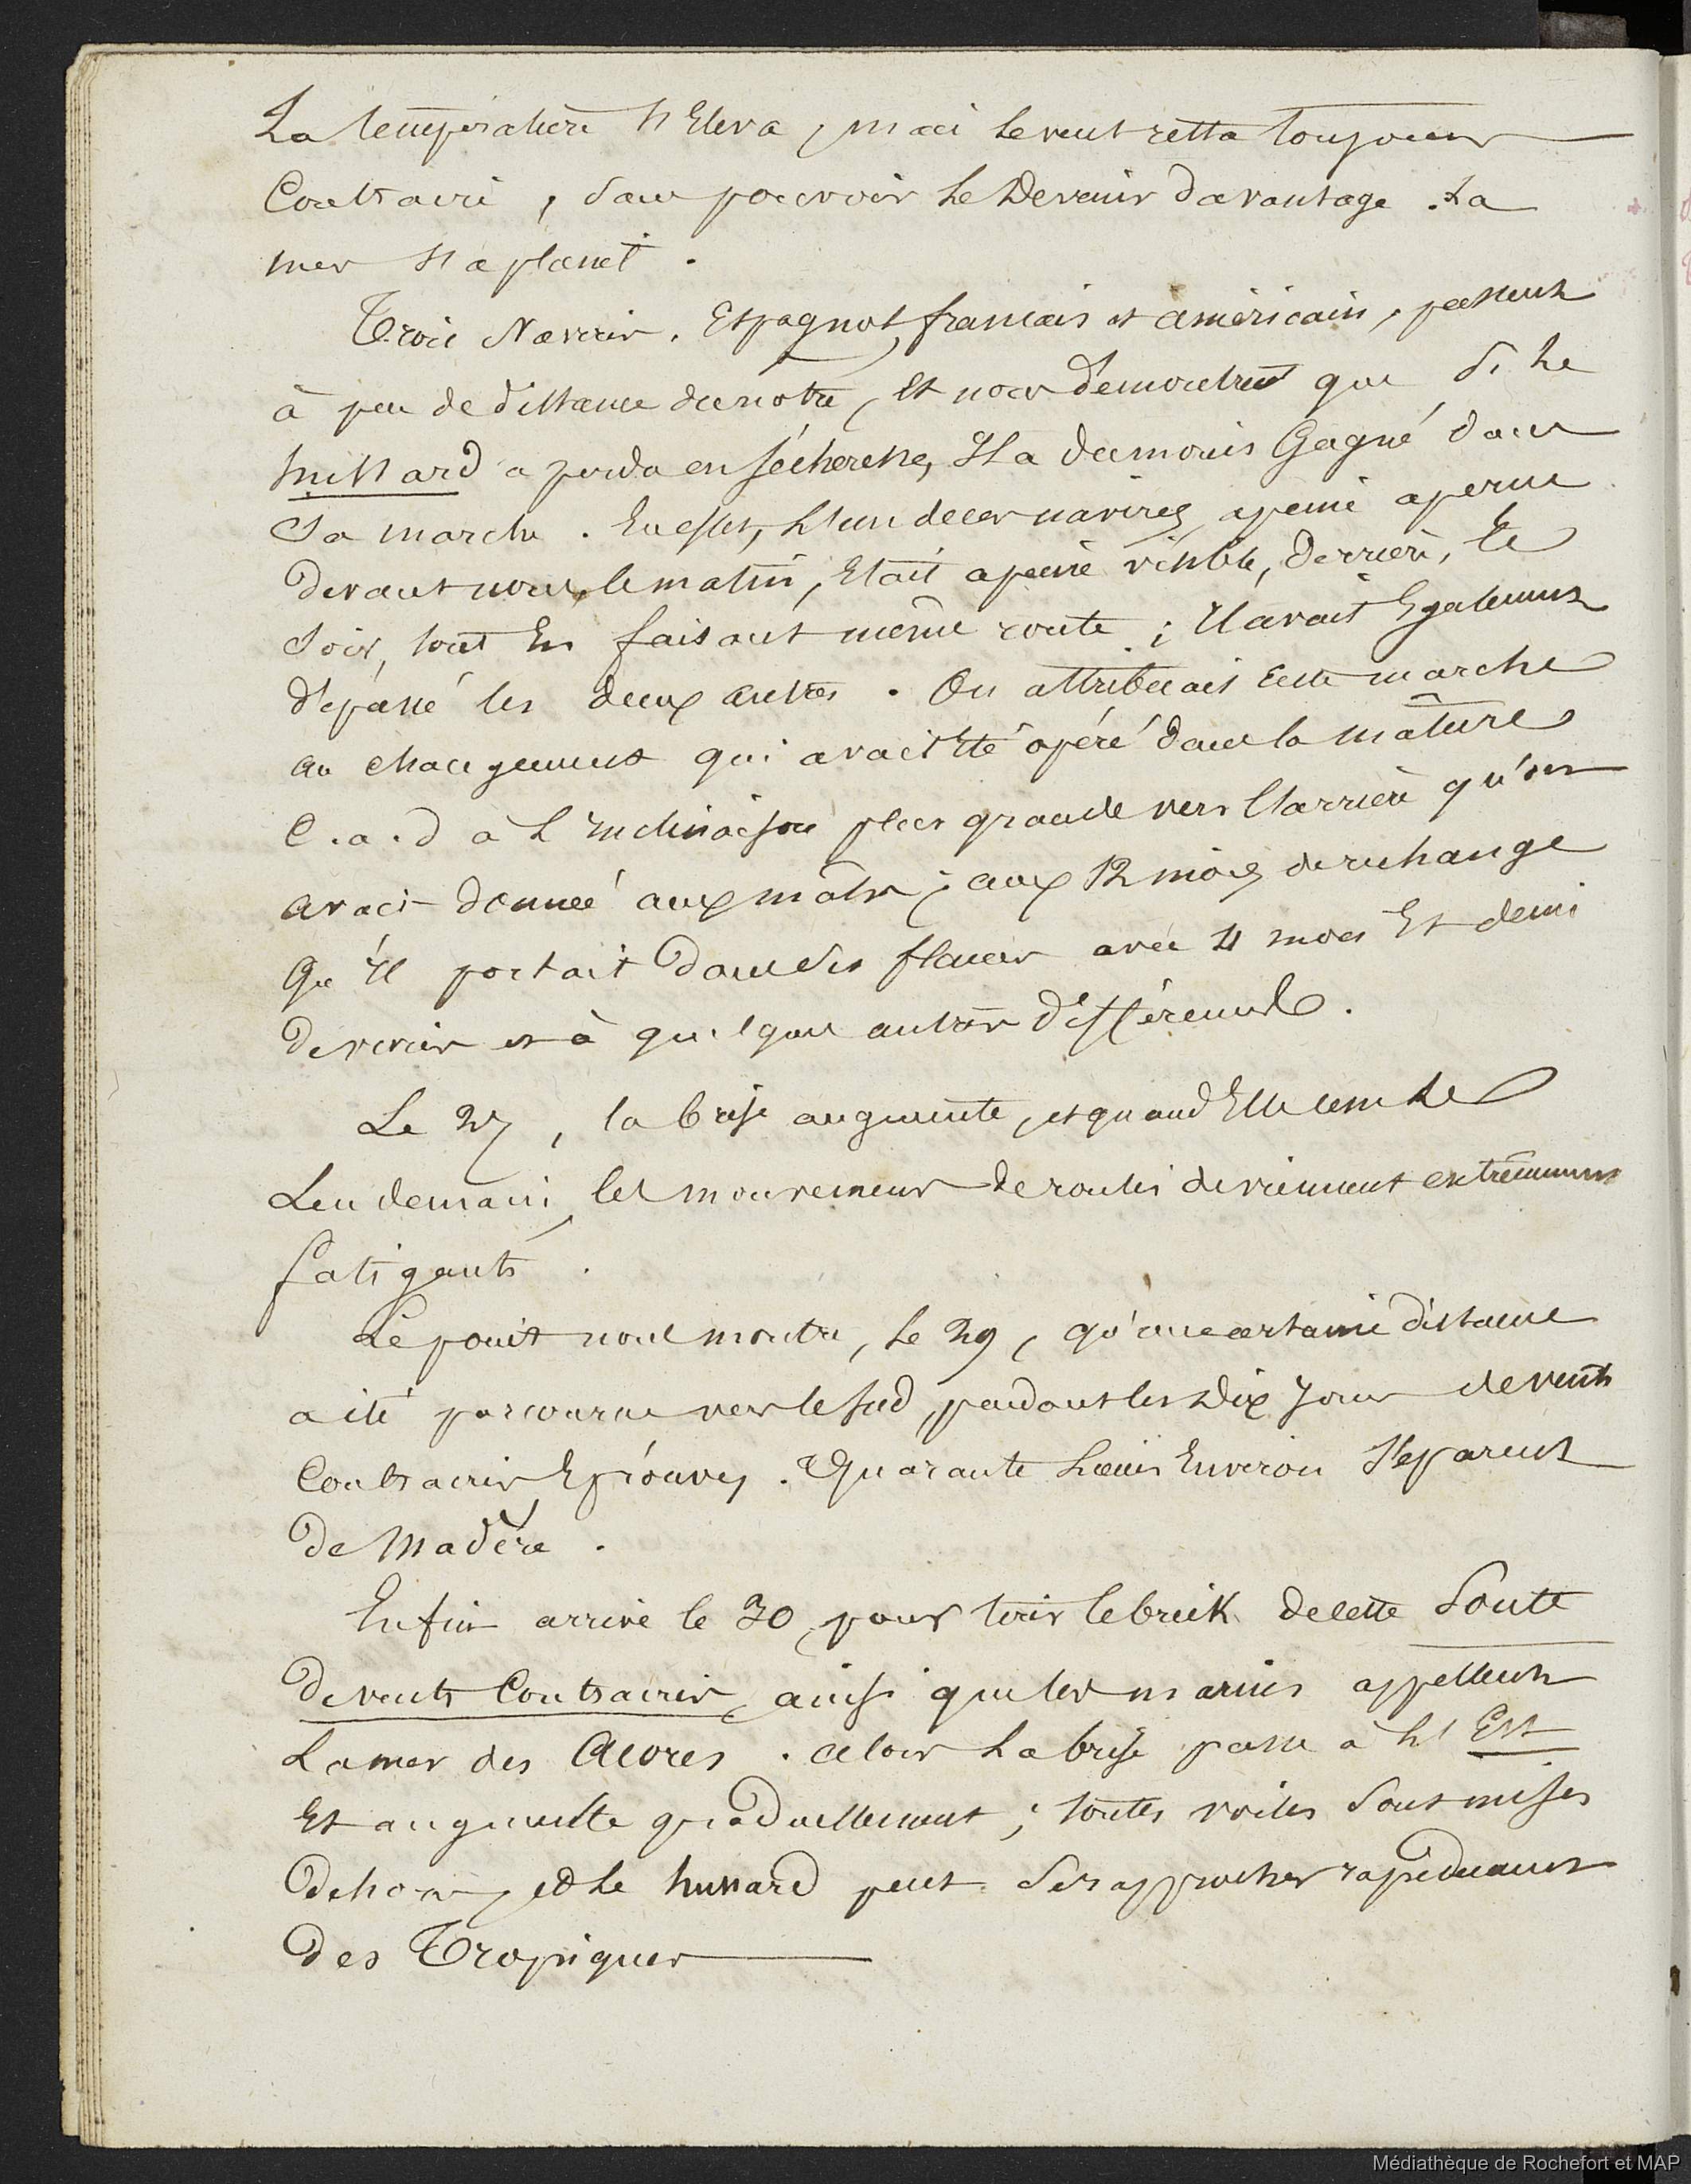 La température s'Eleva, mais le vent resta toujours
Contraire, sans pouvoir le Devenir davantage. La
mer s'aplanit.
Trois Navires, Espagnol, francais et américain, passent
à peu de distance du notre, Et nous démontrent que si le
hussard a perdu en sécheresse, Il a du moins Gagné dans
Sa marche. En effet, L'un de ces navires, apeine aperçu
devant nous, le matin, Etait apeine visible, derriere, le
Soir, tout En faisant même route; Il avait Egalement
dépassé les deux autres. On attribuait cette marche
au changement qui avait Eté opéré dans la mâture
C.a.d à L'Inclinaison plus grande vers l'arriere qu'on
avait donnée aux mâts; aux 12 mois de rechange
Qu'Il portait dans ses flancs avec 4 mois Et demi
de vivres et à quelques autres différences.
Le 27, la brise augmente, et quand Elle cesse Le
Lendemain, les mouvemens de roulis deviennent extrêmement
fatigants.
Le point nous montre, le 29, qu'une certaine distance
a été parcourue vers le sud, pendant les Dix Jours de vents
Contraires Eprouvés. Quarante Lieues Environ Séparent
De Madère.
Enfin arrive le 30, pour tirer le brick de cette Soute
De vents Contraires, ainsi que les marins appellent
La mer des Acores. alors La brise passe à L'Est
Et augmente graduellement; toutes voiles sont mises
Dehors, et Le hussard peut Se rapprocher rapidement
Des Tropiques
Médiathèque de Rochefort et MAP